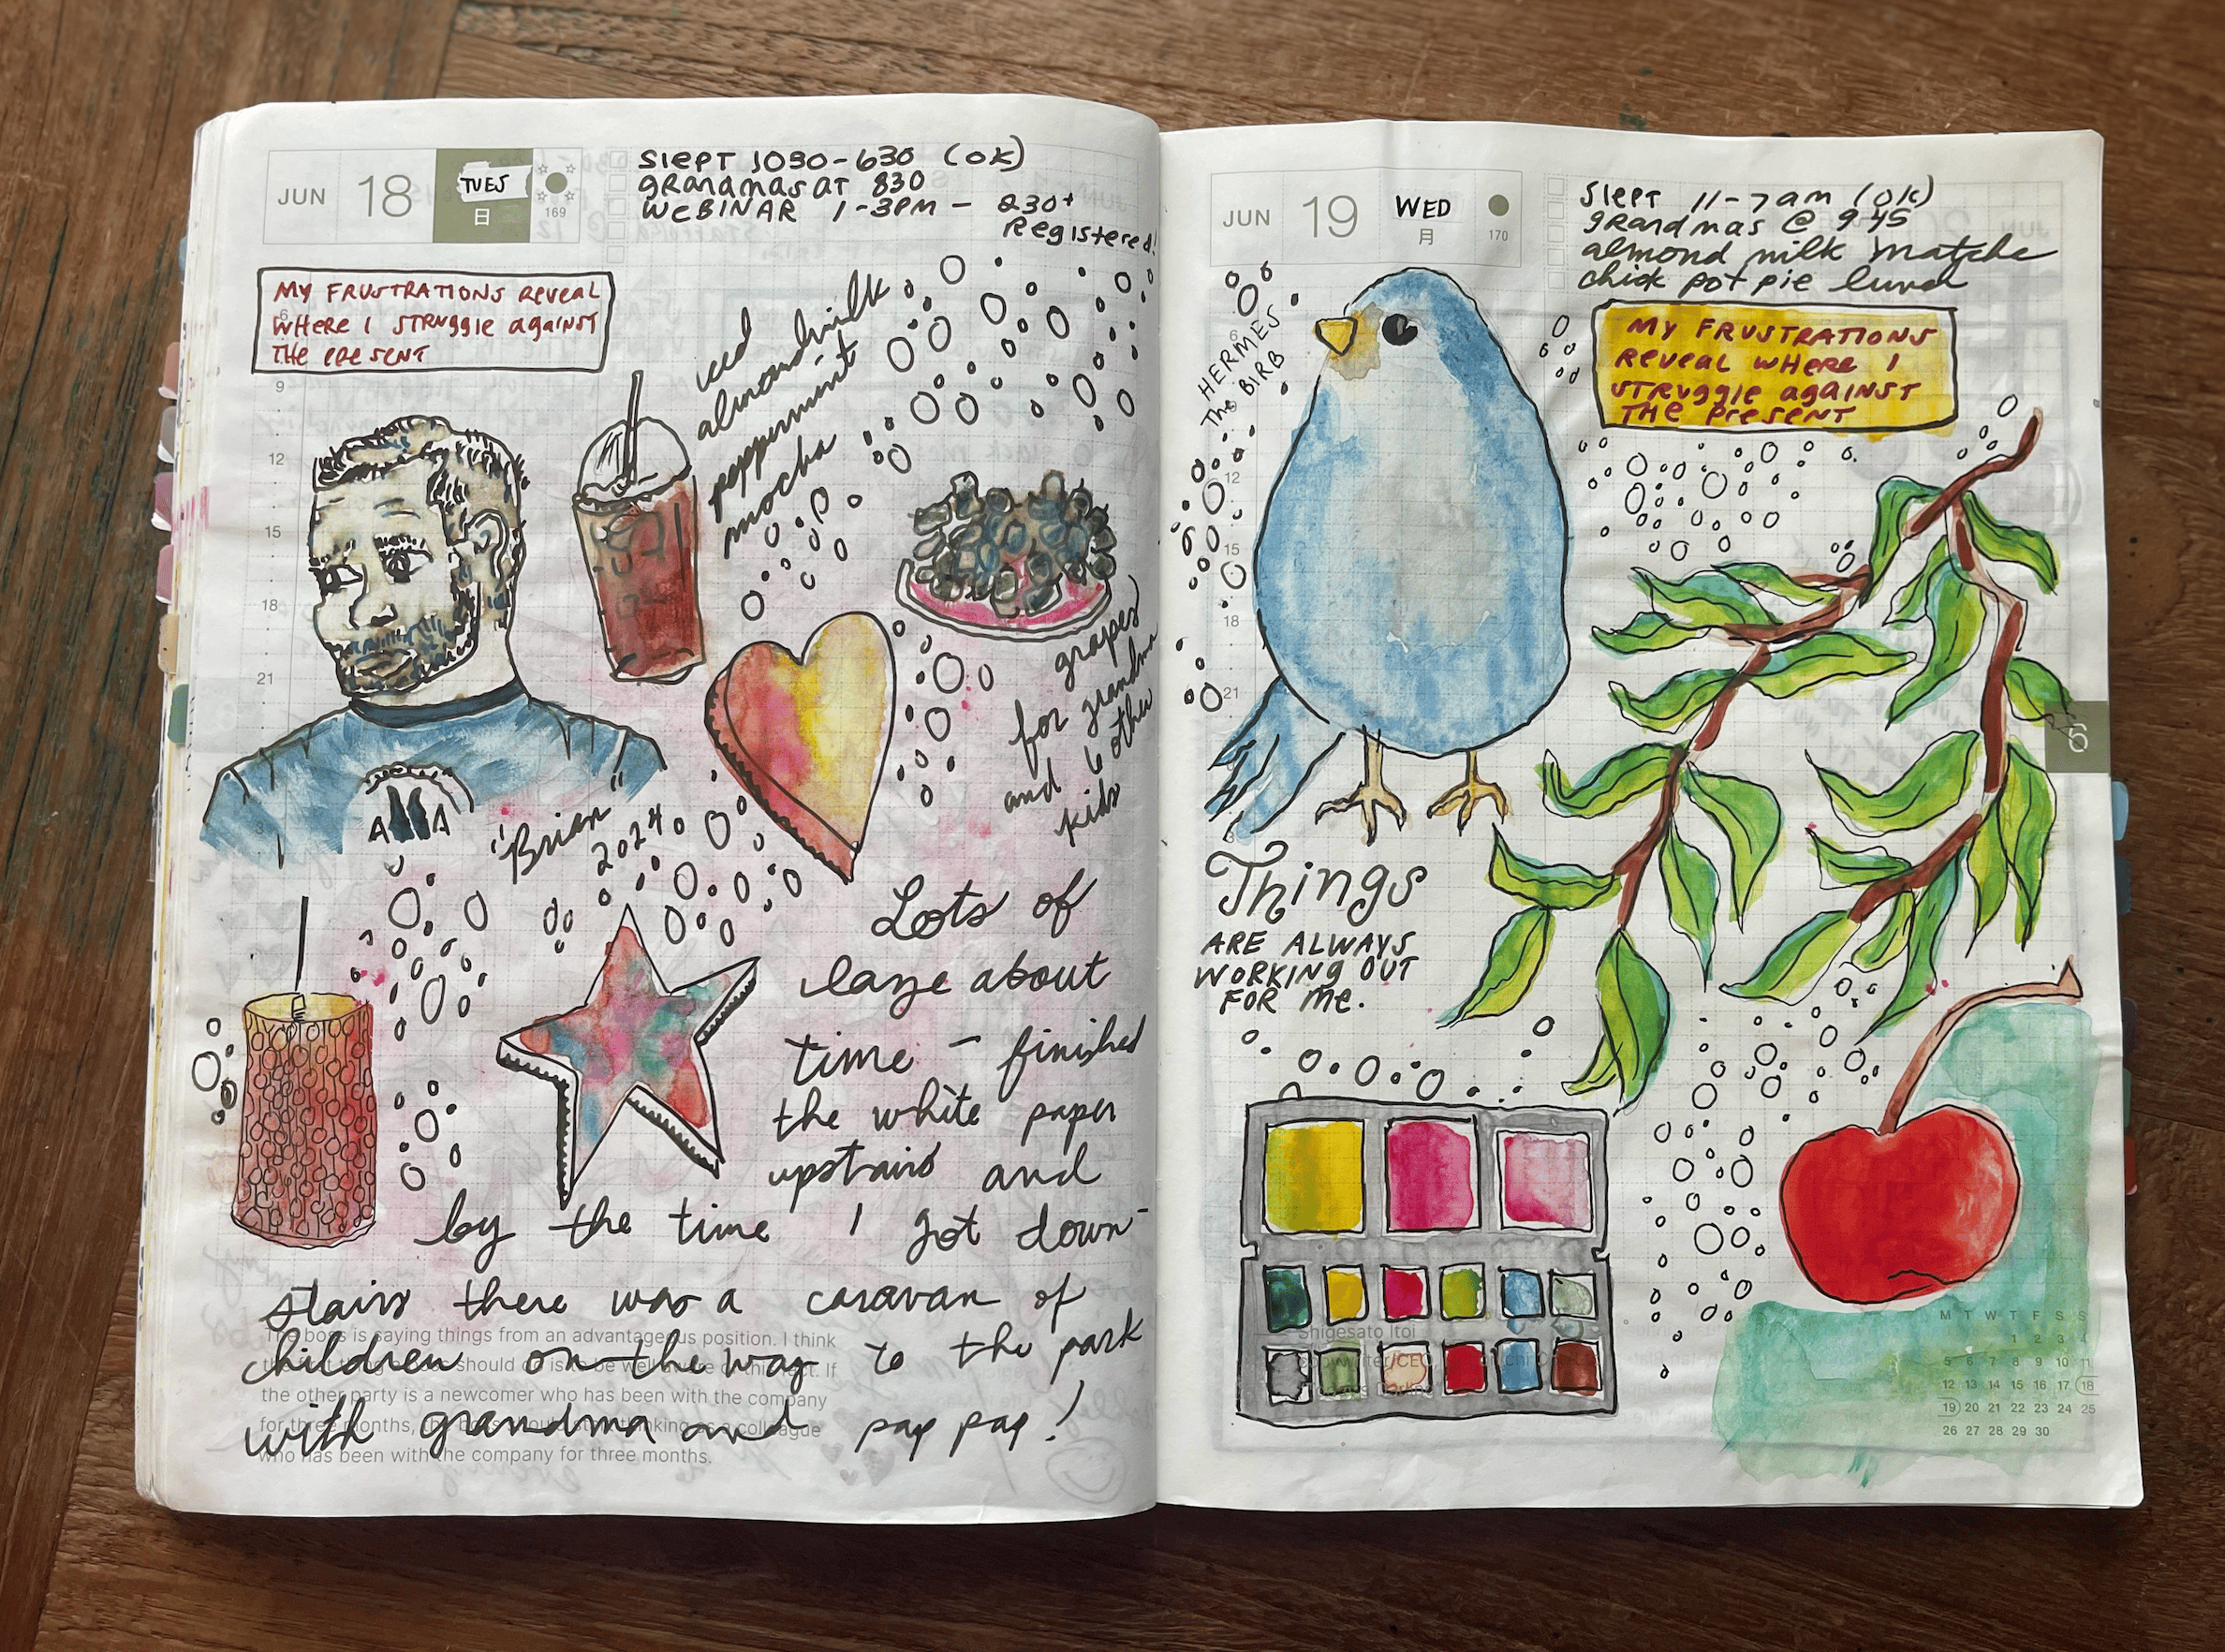 JUN 18 TUES 日 169
SLEPT 1030-630 (OK)
GRANDMAS AT 830
WEBINAR 1-3PM - 230+
Registered!
MY FRUSTRATIONS REVEAL
WHERE I STRUGGLE AGAINST
THE PRESENT
iced
almondmilk
peppermint
mocha
9
12
15
18
21
3
grapes
for grandma
and 6 other
kids
AA
"Brian"
2024
Lots of
laze about
time - finished
the white paper
upstairs and
by the time I got down-
stairs there was a caravan of
children on the way to the park
with grandma and pap pap!
The boss is saying things from an advantageous position. I think
should be well If
the other party is a newcomer who has been with the company
for three months, colleague
who has been with the company for three months.
JUN 19 WED 月 170
SLEPT 11-7am (OK)
GRANDMAS @ 945
almond milk matcha
chick pot pie
HERMES
The BIRB
MY FRUSTRATIONS
REVEAL WHERE I
STRUGGLE AGAINST
THE PRESENT
6
12
15
18
21
6
Things
ARE ALWAYS
WORKING OUT
FOR ME.
Shigesato Itoi
M T W T F S S
1 2 3 4
5 6 7 8 9 10 11
12 13 14 15 16 17 18
19 20 21 22 23 24 25
26 27 28 29 30